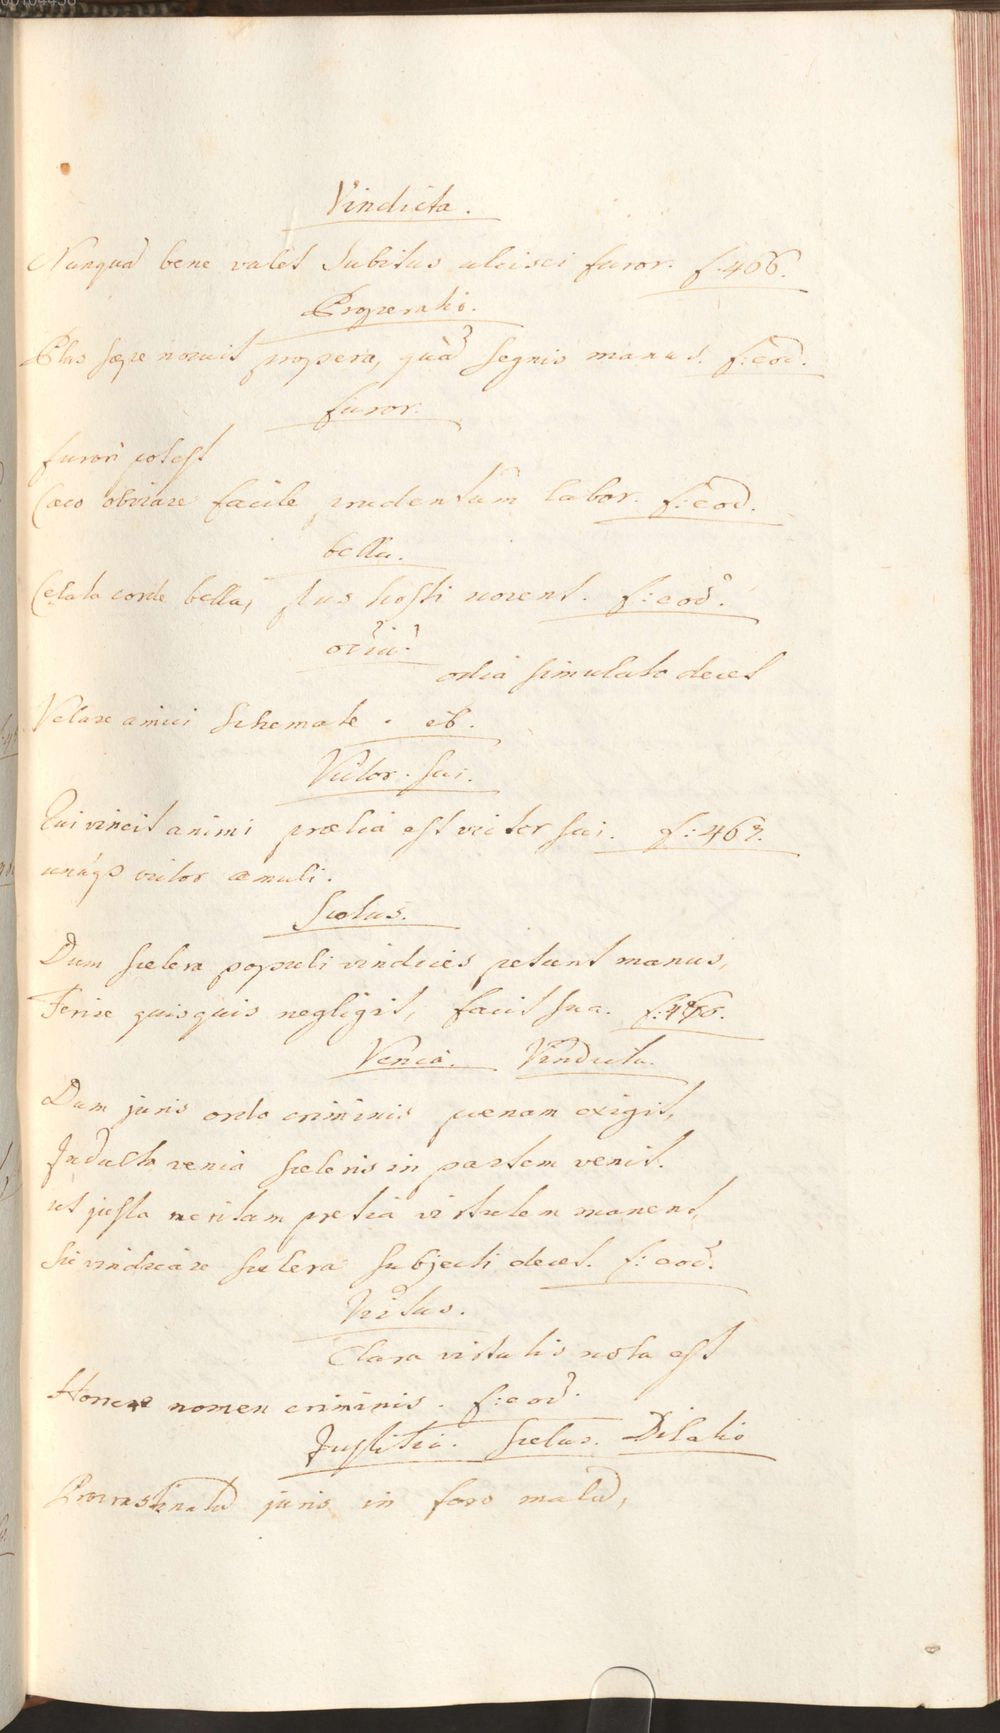 Vindicta.
Nunquā bene valet subitus ulcisci furor. f. 466.
Properatio.
Plus sæpe nocuit propera, quā segnis manus. f: eod.
furor.
furori potest
Cæco obviare facile prudentum labor. f: eod.
bella.
Celata corde bella, plus hosti nocent. f: eod.
odiū.
odia simulato decet
Velare amici schemate. ib.
Victor sui.
Qui vincit animi prælia est victor sui. f: 467.
victor æmuli.
Scelus.
Dum scelera populi vindices petunt manus,
Ferire quisquis negligit, facit sua.
Venia. Vindicta.
Dum juris ordo criminis pœnam exigit,
Indulta venia sceleris in partem venit.
ut justa meritam pretia virtutem manent,
Sic vindicare scelera subjecti decet. f: eod.
Virtus.
Clara virtutis nota est
Horrere nomen criminis. f: eod.
Justitia. Scelus. Dilatio
Procrastinatū juris in foro malū,